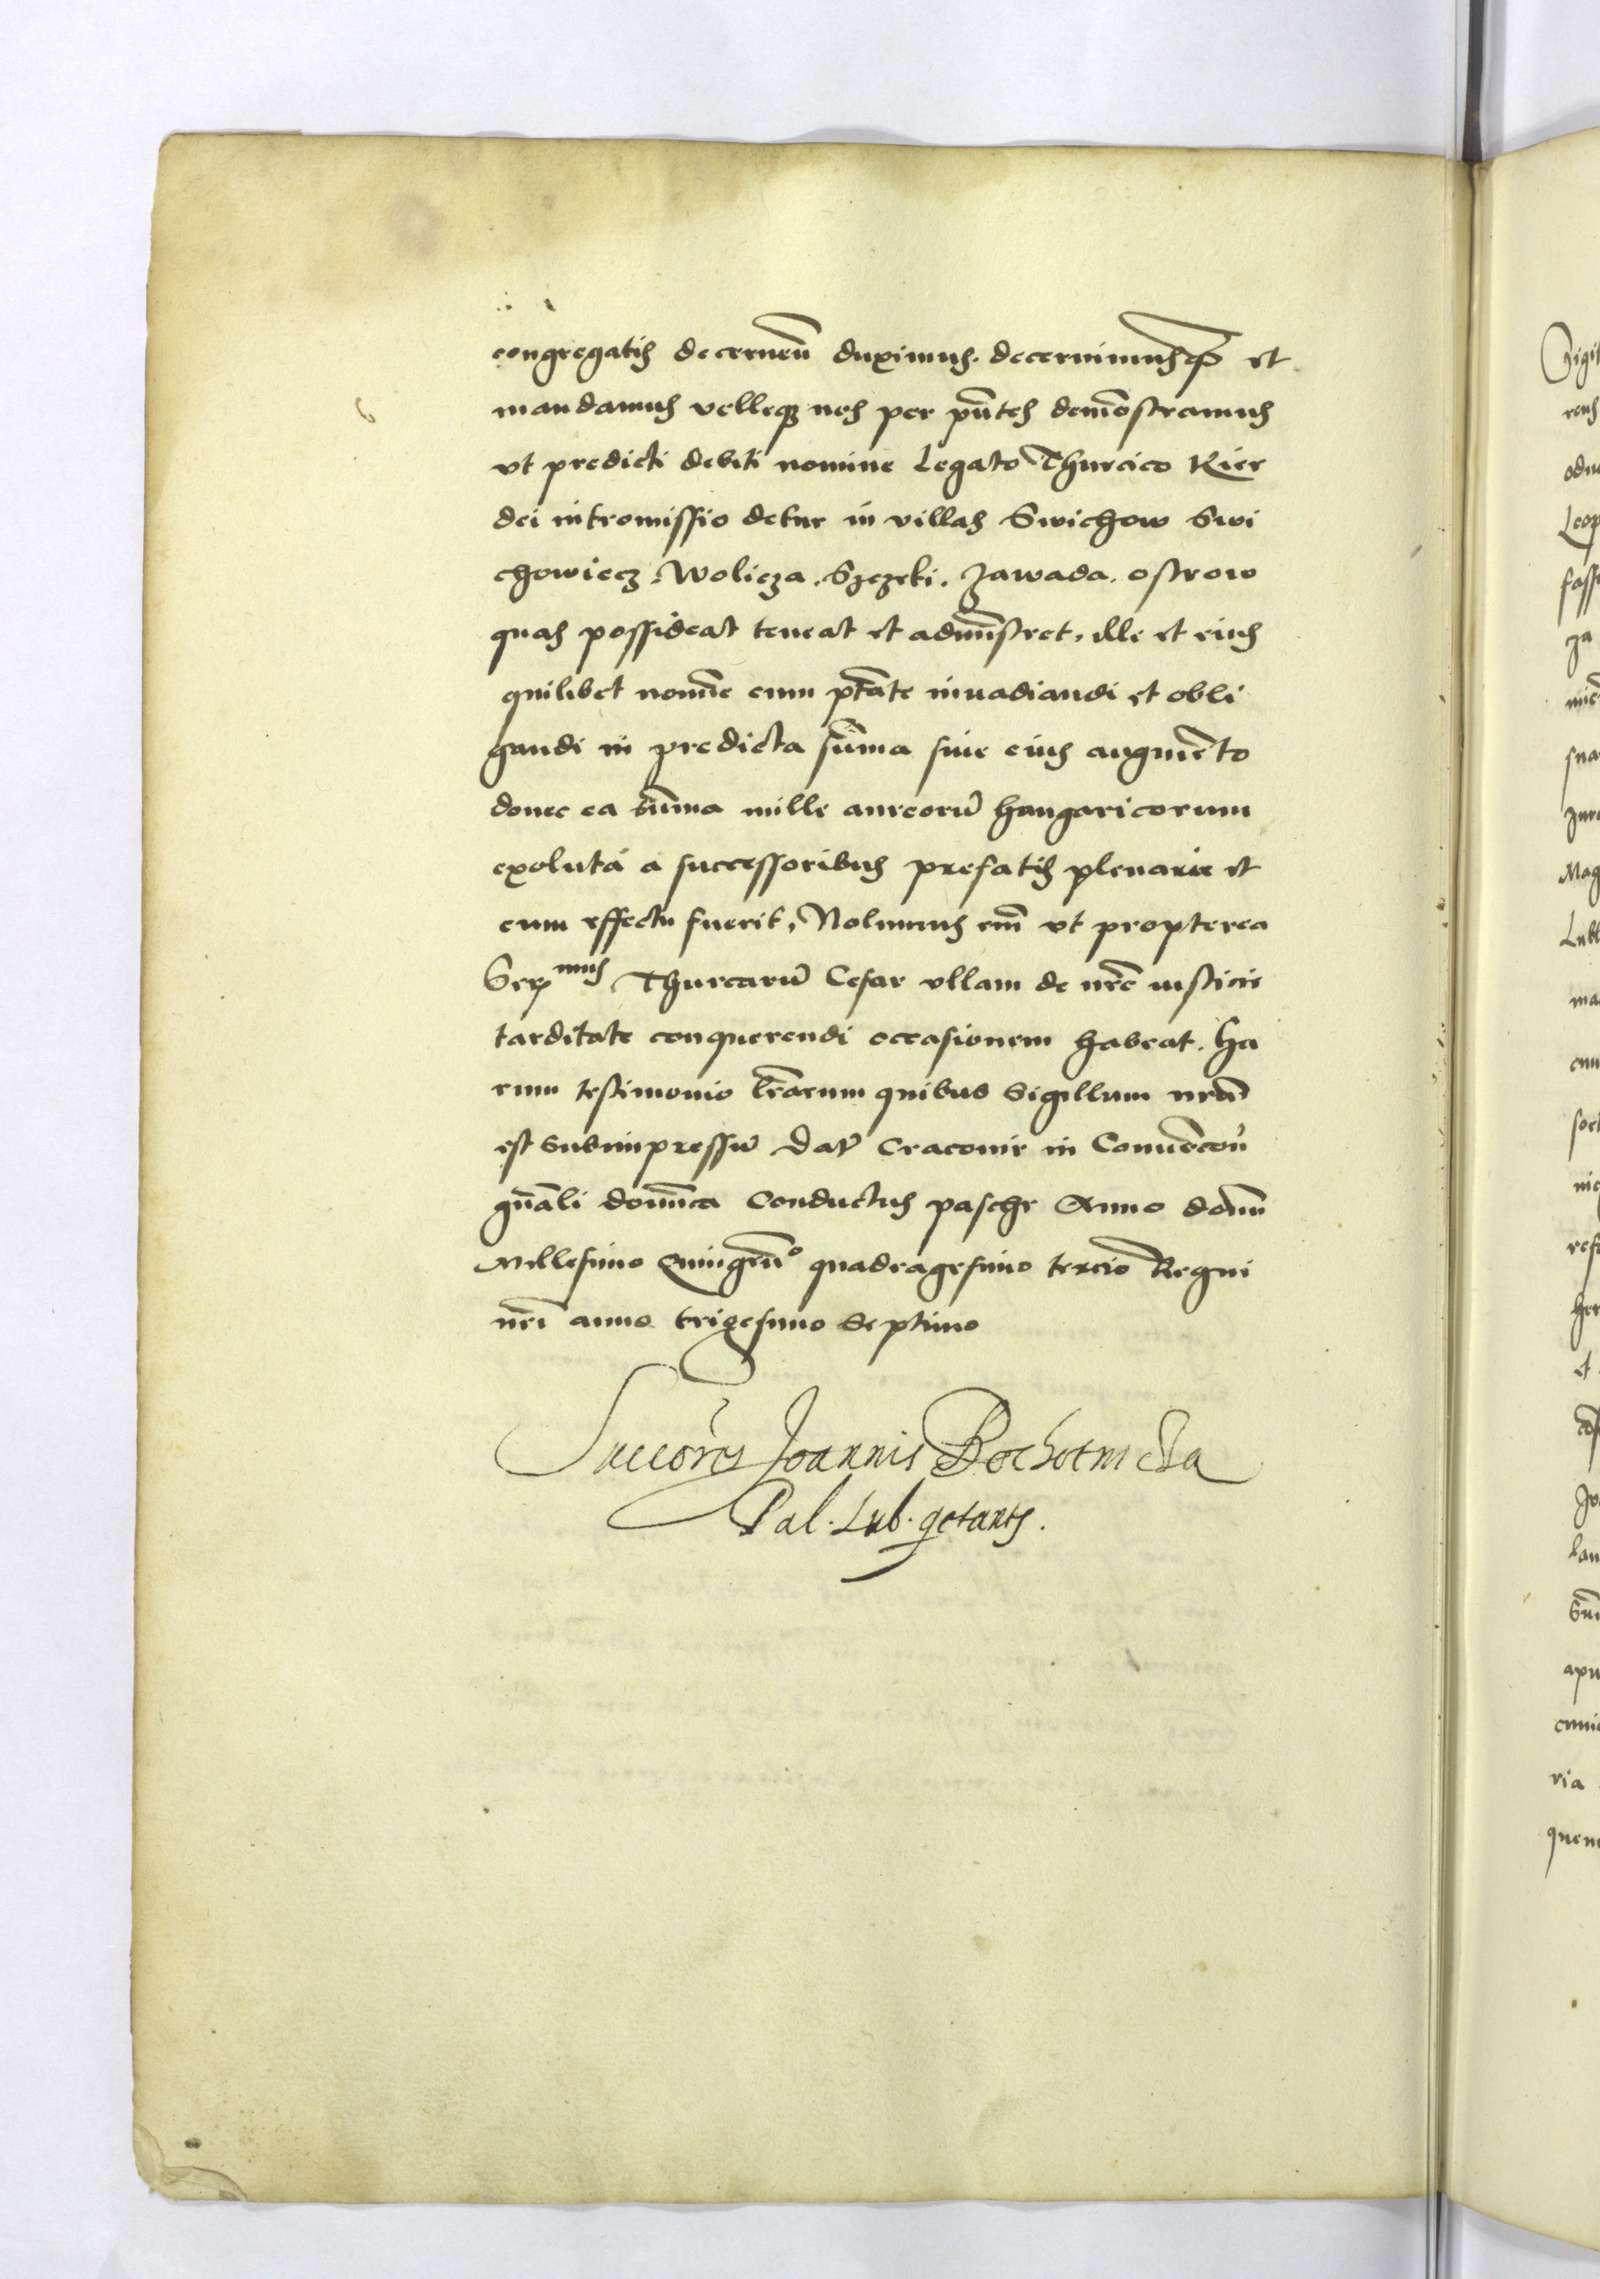 congregatis decerneñ duximus. decernimusq3 et
mandamus velleq3 nos per pn̄tes demōstramus
vt predicti debiti nomine Legato Thurcico Kier
dei intromissio detur in villas Swichow Swi
chowiecz. Wolicza. Szczeki. Zawada. ostrow
quas possideat teneat et admīstret, ille et eius
quilibet noīe cum ptāte inuadiandi et obli
gandi in predicta sūma siue eius augmēto
donec ea sūma mille aureorū hungaricorum
exoluta a successoribus prefatis plenarie et
cum effectu fuerit, Nolumus em̄ vt propterea
Serᵐᵘˢ Thurcarū Cesar vllam de nr̄e iusticie
tarditate conquerendi occasionem habeat. Ha
rum testimonio lr̄arum quibus Sigillum nrūm
est subimpressū dat̄ Cracouie in Conuēcoñ
gn̄ali domīca Conductus pasche Anno domī
Millesimo Quingen̄º quadragesimo tercio Regni
nr̄i anno trigesimo septimo
Succōres Joannis Bochotnicka
Pal. Lub.